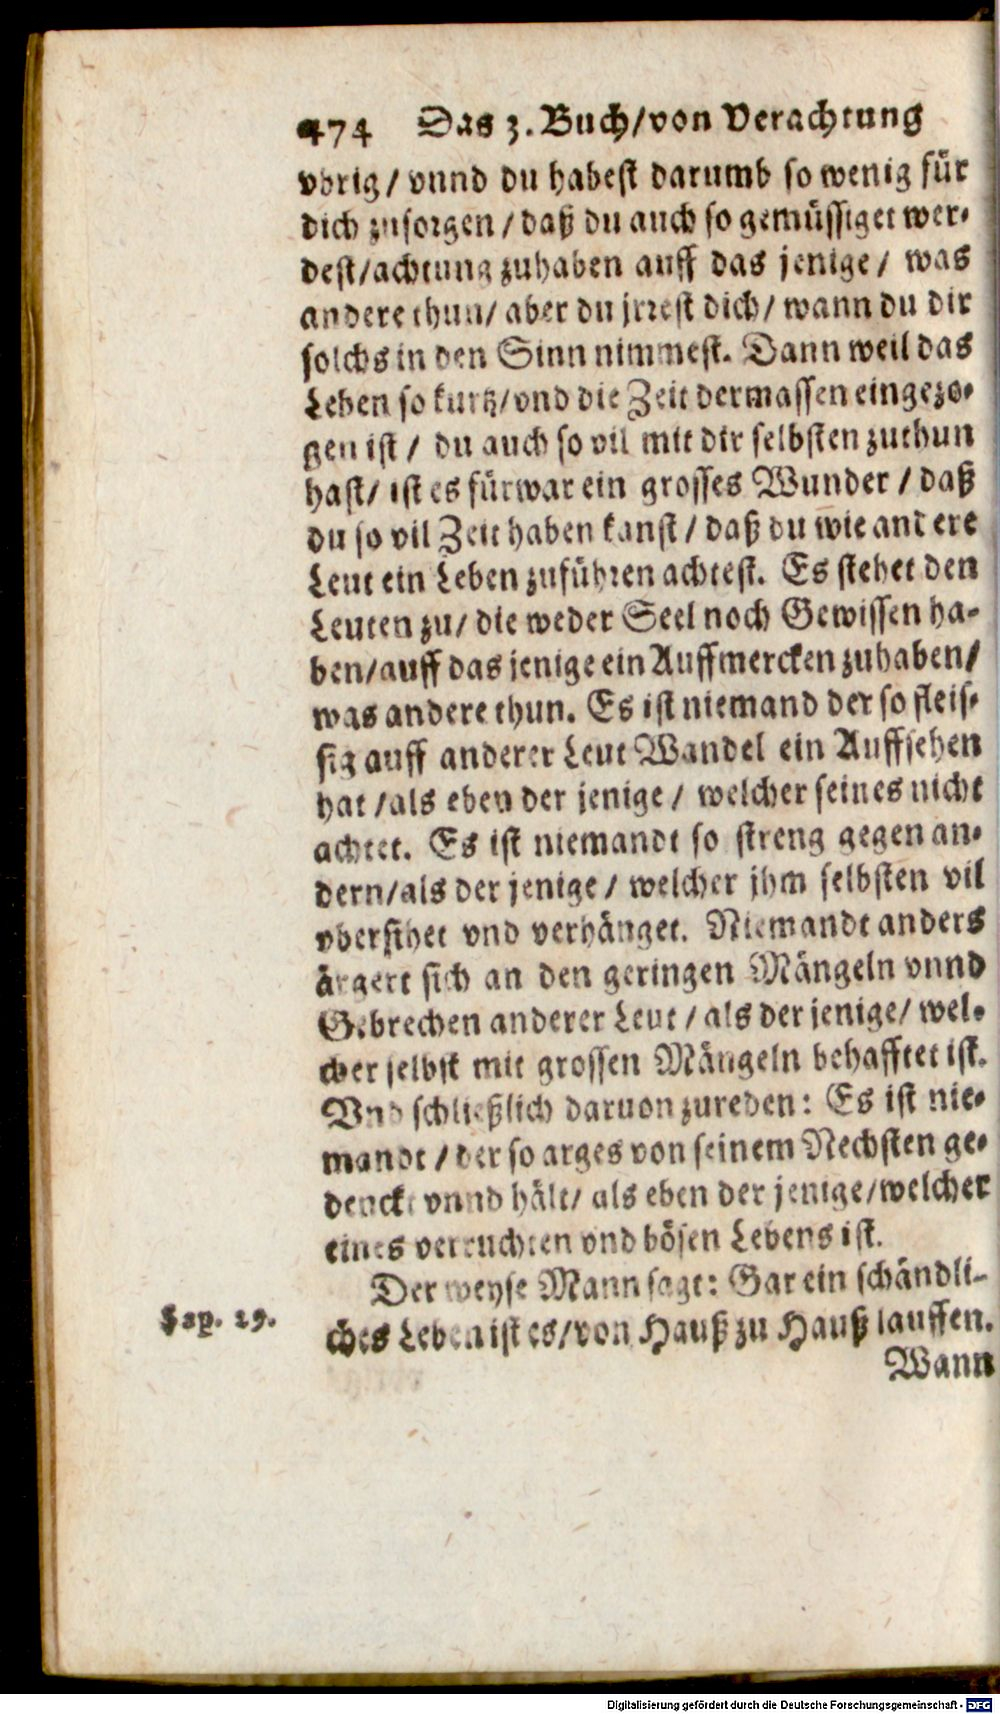 474 Das 3. Buch/von Verachtung
vbrig/ vnnd du habest darumb so wenig für
dich zusorgen/ daß du auch so gemüssiget wer-
dest/achtung zuhaben auff das jenige/ was
andere thun/ aber du jrrest dich/ wann du dir
solchs in den Sinn nimmest. Dann weil das
Leben so kurtz/vnd die Zeit dermassen eingezo-
gen ist/ du auch so vil mit dir selbsten zuthun
hast/ ist es fürwar ein grosses Wunder/ daß
du so vil Zeit haben kanst/ daß du wie andere
Leut ein Leben zuführen achtest. Es stehet den
Leuten zu/ die weder Seel noch Gewissen ha-
ben/auff das jenige ein Auffmercken zuhaben/
was andere thun. Es ist niemand der so fleis-
sig auff anderer Leut Wandel ein Auffsehen
hat/als eben der jenige/ welcher seines nicht
achtet. Es ist niemandt so streng gegen an-
dern/als der jenige/ welcher jhm selbsten vil
vbersihet vnd verhänget. Niemandt anders
ärgert sich an den geringen Mängeln vnnd
Gebrechen anderer Leut/als der jenige/ wel-
cher selbst mit grossen Mängeln behafftet ist.
Vnd schließlich daruon zureden: Es ist nie-
mandt/der so arges von seinem Nechsten ge-
denckt vnnd hält/ als eben der jenige/welcher
eines verruchten vnd bösen Lebens ist.
Der weyse Mann sagt: Gar ein schändli-
Sap. 29. ches Leben ist es/von Hauß zu Hauß lauffen.
Wann
Digitalisierung gefördert durch die Deutsche Forschungsgemeinschaft - DFG